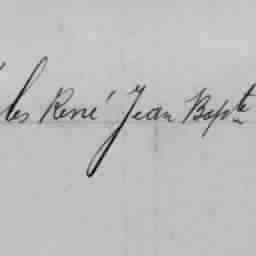 les René Jean Bapte